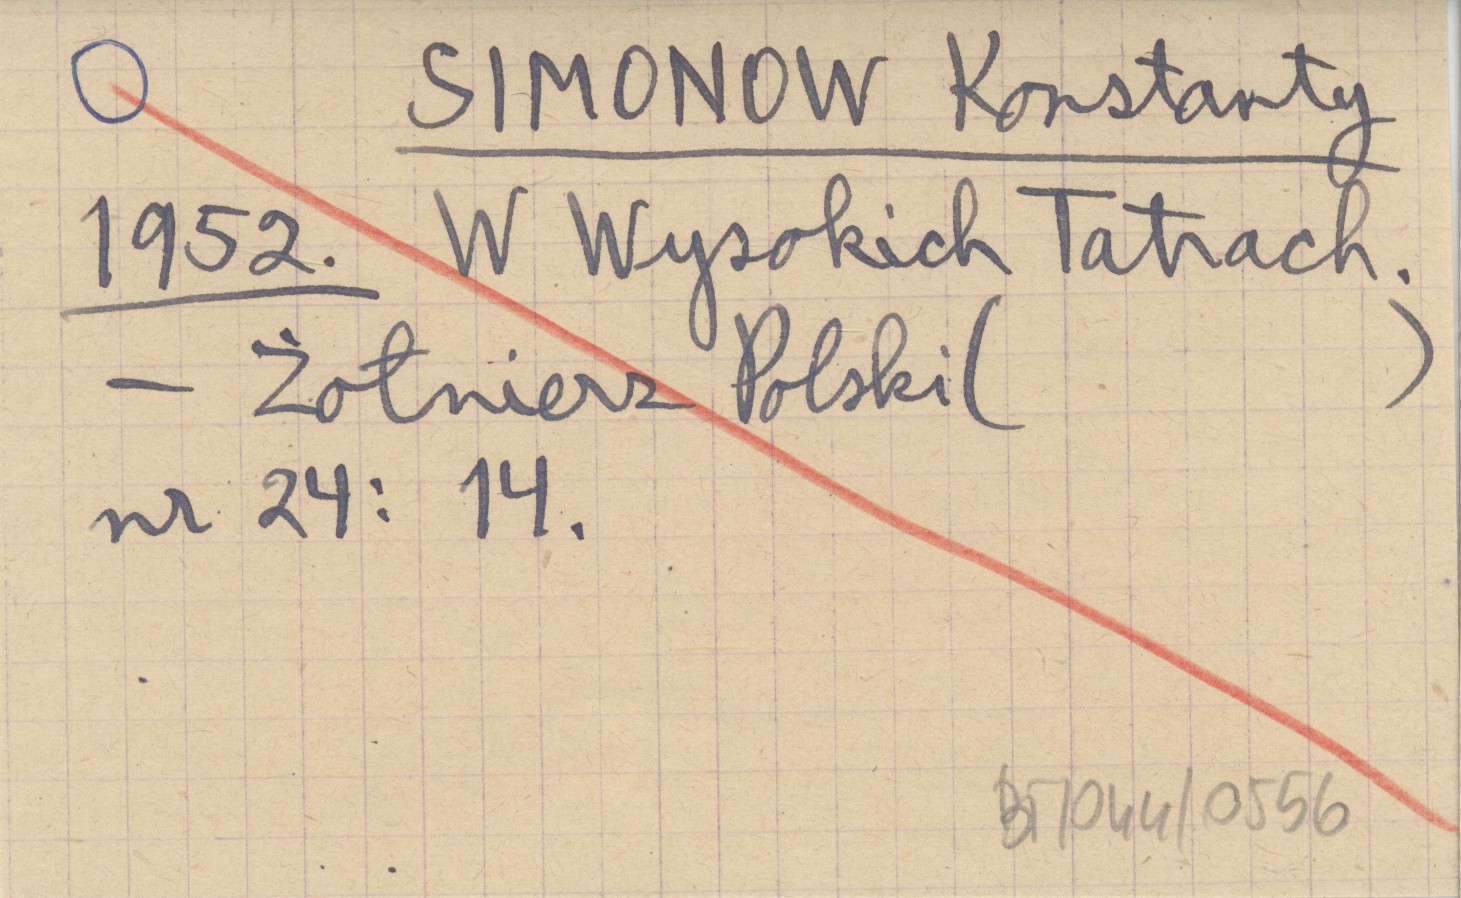 SIMONOW Konstanty
1952. W Wysokich Tatrach.
— Żołnierz Polski ( )
nr 24: 14.
BT/044/0556